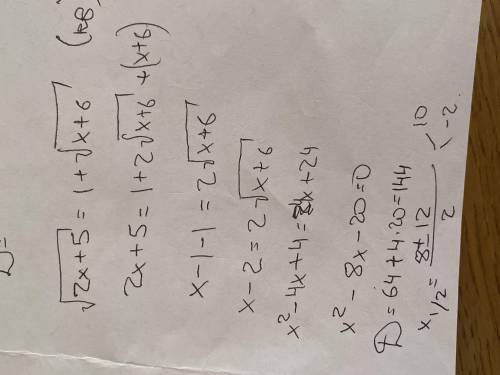 D=
√(2x+5) = 1+√(x+6)
2x+5 = 1+2√(x+6) + (x+6)
x-1-1 = 2√(x+6)
x-2 = 2√(x+6)
x²-4x+4 = 4x+24
x²-8x-20=0
D=64+4·20=144
x1/2 = (8±12)/2 < 10
< -2